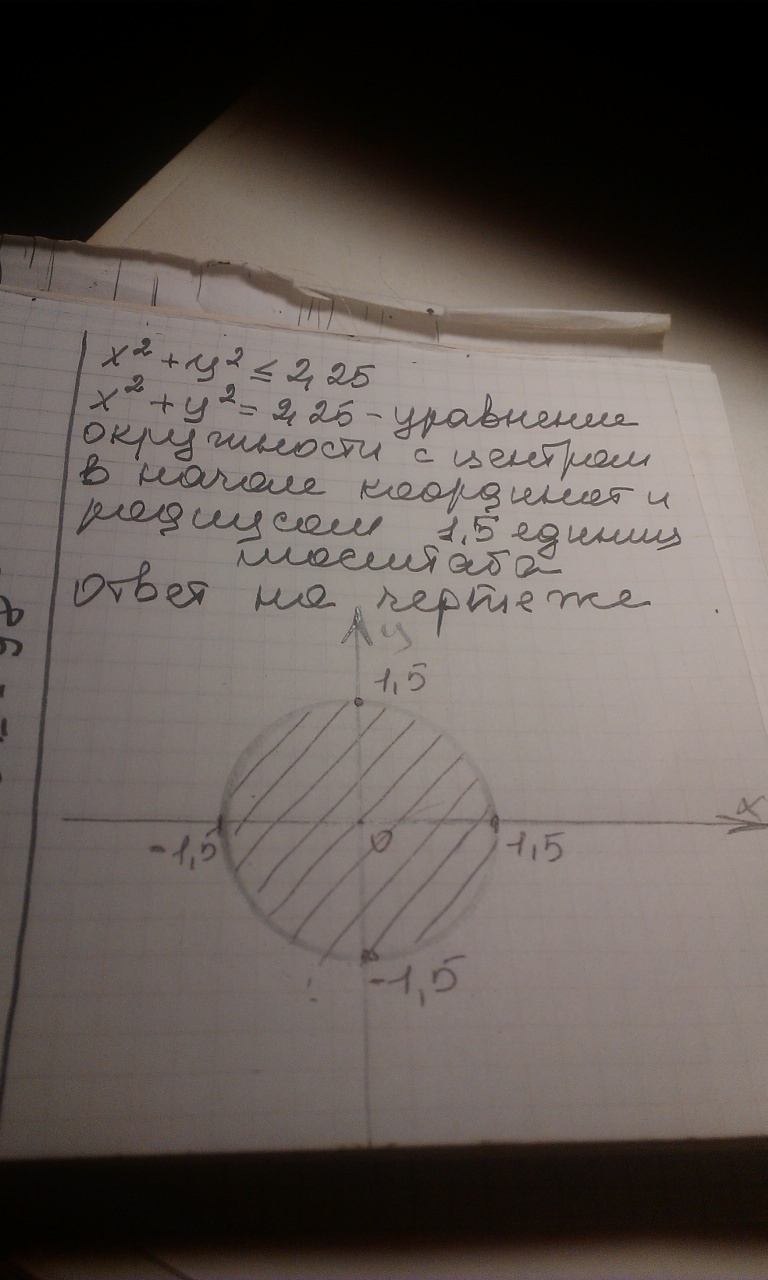 x² + y² ≤ 2,25
x² + y² = 2,25 - уравнение
окружности с центром
в начале координат и
радиусом 1,5 единиц
масштаба
Ответ на чертеже
y
1,5
x
-1,5 0 1,5
-1,5